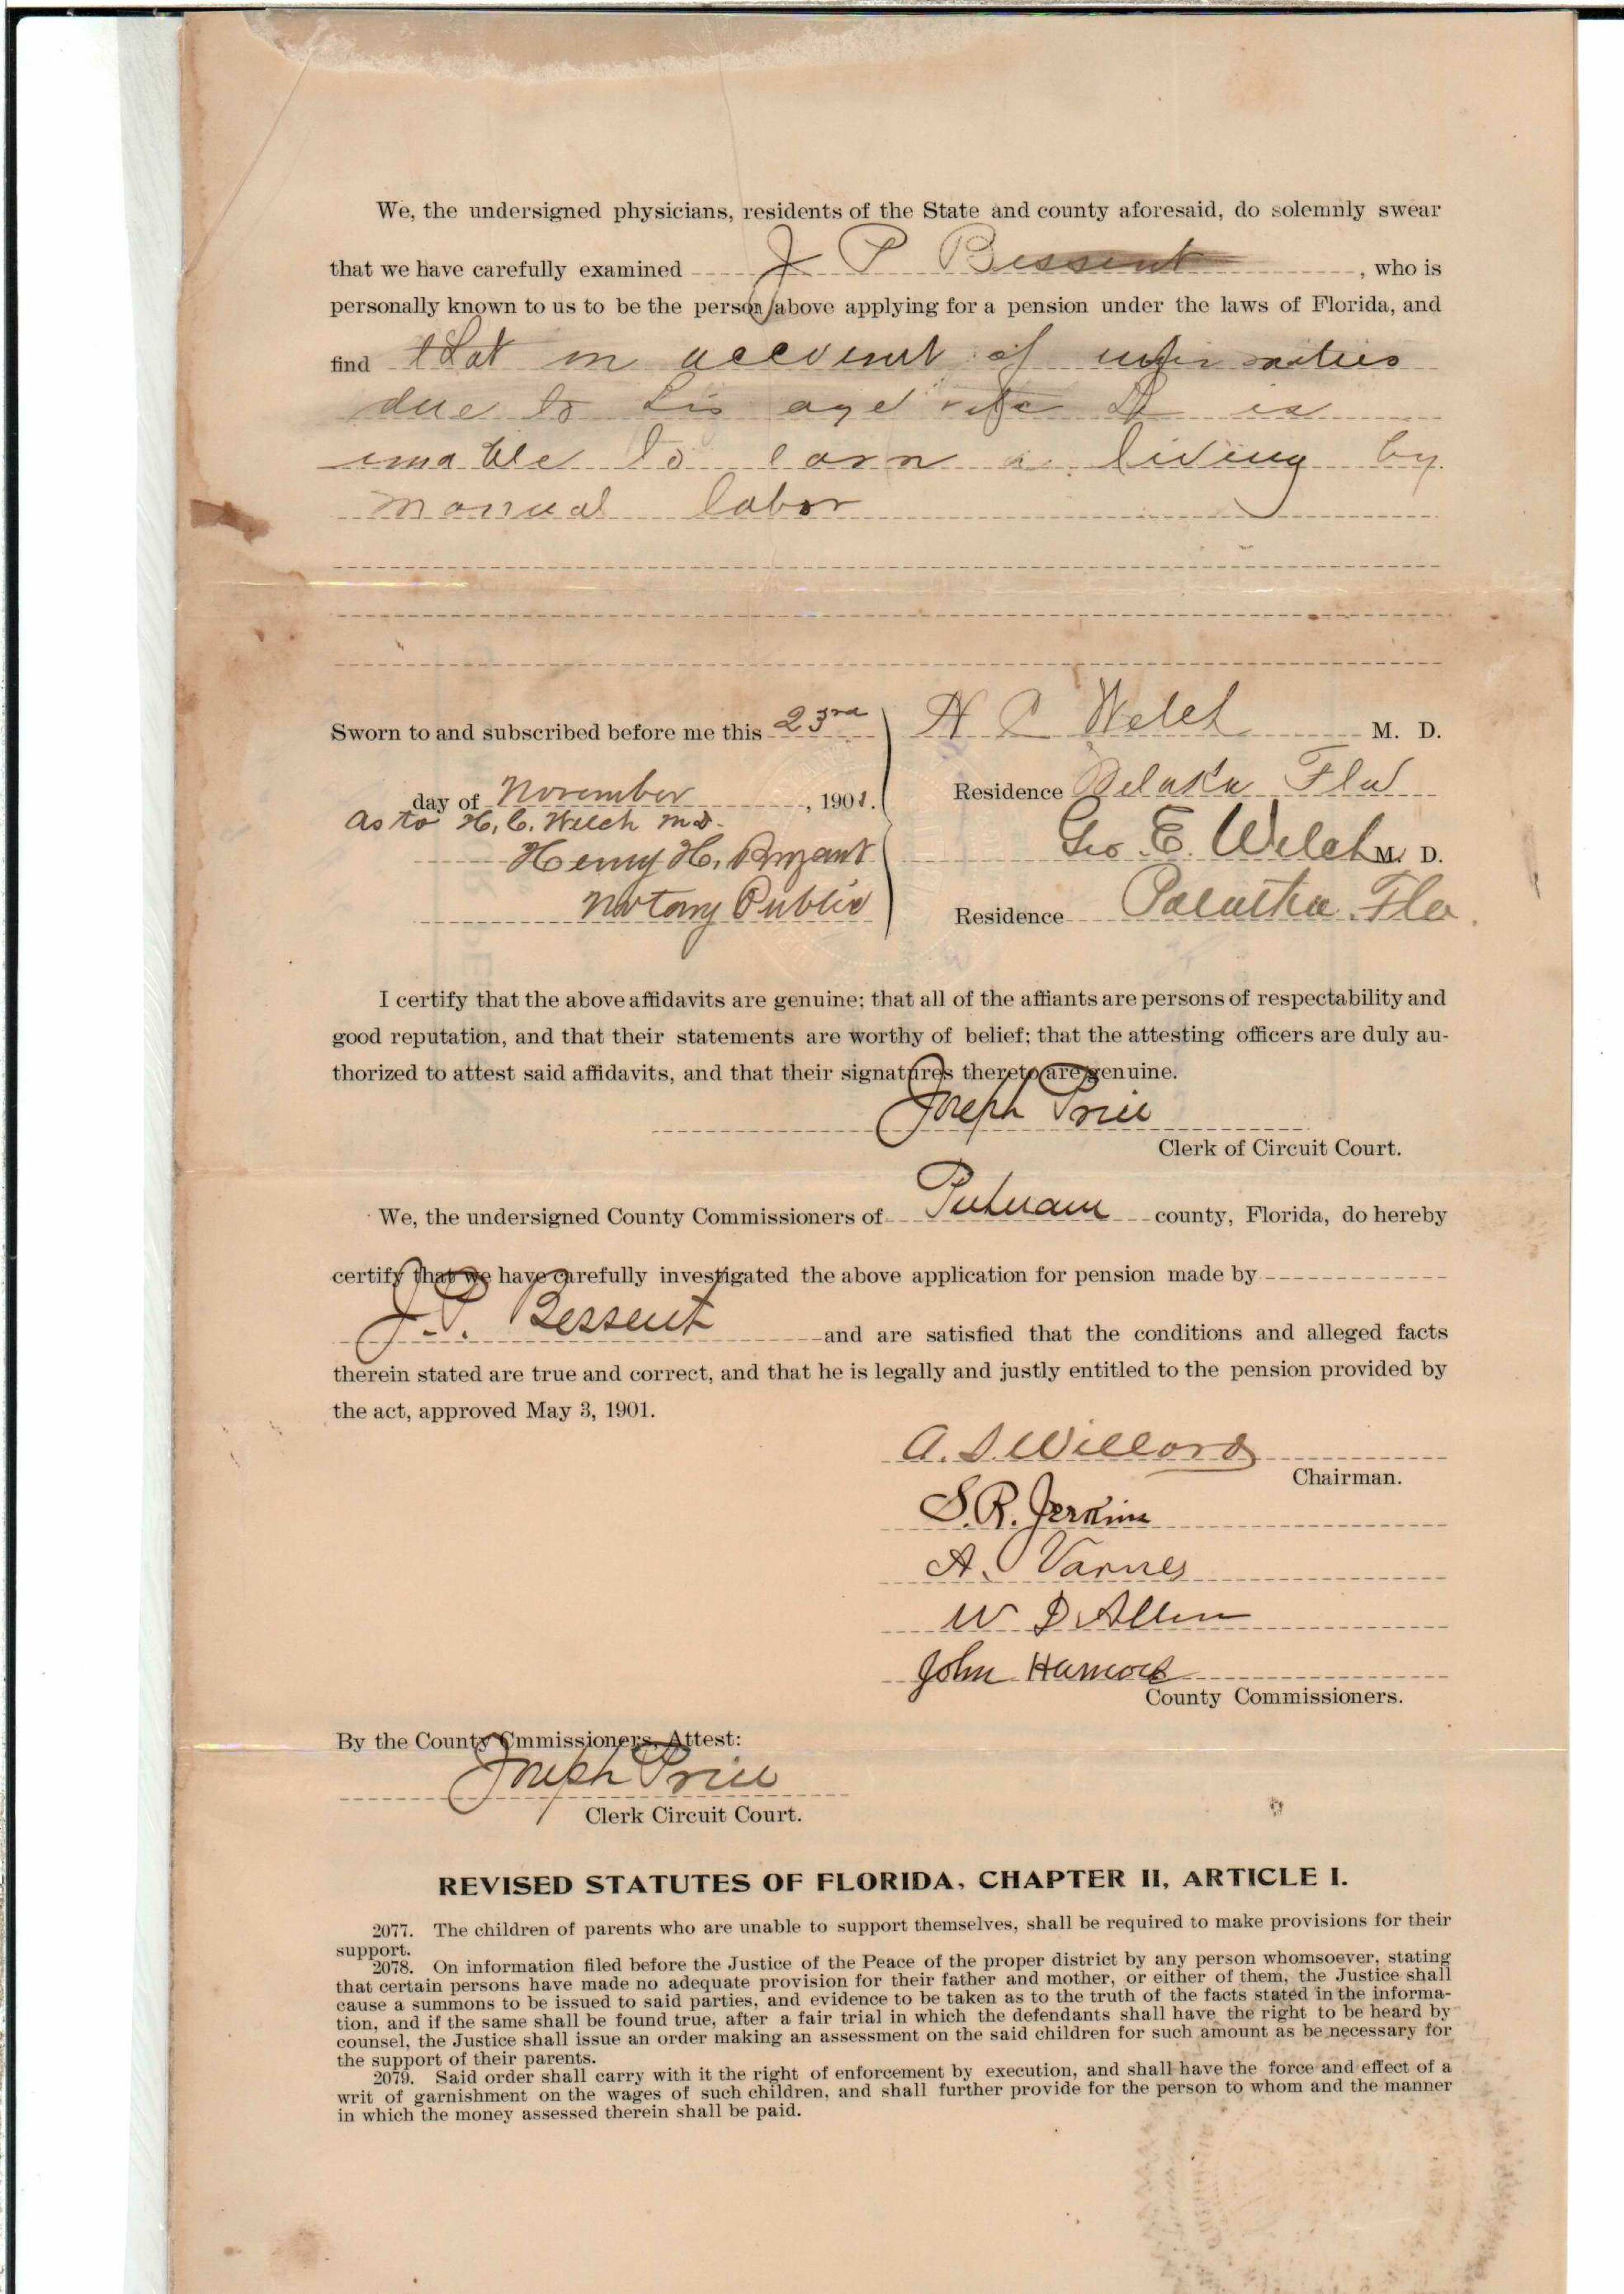 We, the undersigned physicians, residents of the State and county aforesaid, do solemnly swear
that we have carefully examined J P Bessent, who is
personally known to us to be the person above applying for a pension under the laws of Florida, and
find that on account of infirmities
due to his age he is
unable to earn a living by
manual labor
Sworn to and subscribed before me this 23rd
H C Welch M. D.
day of November, 1901.
Residence Welaka Fla
As to H. C. Welch M.D.
Geo E. Welch M. D.
Henry H. Bryant
Notary Public
Residence Palatka Fla.
I certify that the above affidavits are genuine; that all of the affiants are persons of respectability and
good reputation, and that their statements are worthy of belief; that the attesting officers are duly au-
thorized to attest said affidavits, and that their signatures thereto are genuine.
Joseph Price
Clerk of Circuit Court.
We, the undersigned County Commissioners of Putnam county, Florida, do hereby
certify that we have carefully investigated the above application for pension made by
J. P. Bessent and are satisfied that the conditions and alleged facts
therein stated are true and correct, and that he is legally and justly entitled to the pension provided by
the act, approved May 3, 1901.
A. S. Willard
Chairman.
S. R. Jerkins
A. Varnes
W D Allen
John
County Commissioners.
By the County Cmmissioners, Attest:
Joseph Price
Clerk Circuit Court.
REVISED STATUTES OF FLORIDA, CHAPTER II, ARTICLE I.
2077. The children of parents who are unable to support themselves, shall be required to make provisions for their
support.
2078. On information filed before the Justice of the Peace of the proper district by any person whomsoever, stating
that certain persons have made no adequate provision for their father and mother, or either of them, the Justice shall
cause a summons to be issued to said parties, and evidence to be taken as to the truth of the facts stated in the informa-
tion, and if the same shall be found true, after a fair trial in which the defendants shall have the right to be heard by
counsel, the Justice shall issue an order making an assessment on the said children for such amount as be necessary for
the support of their parents.
2079. Said order shall carry with it the right of enforcement by execution, and shall have the force and effect of a
writ of garnishment on the wages of such children, and shall further provide for the person to whom and the manner
in which the money assessed therein shall be paid.